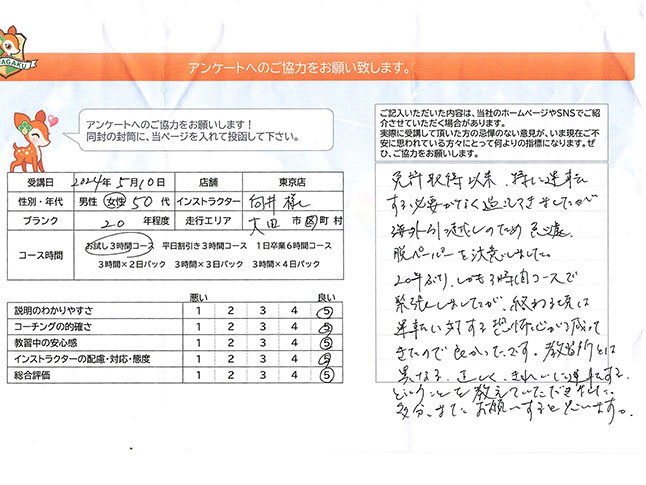 NAGAKU
アンケートへのご協力をお願い致します。
アンケートへのご協力をお願いします！
同封の封筒に、当ページを入れて投函して下さい。
ご記入いただいた内容は、当社のホームページやSNSでご紹介させていただく場合があります。
実際に受講して頂いた方の忌憚のない意見が、いま現在ご不安に思われている方々にとって何よりの指標になります。ぜひ、ご協力をお願いします。
受講日 2024年 5月10日 店舗 東京店
性別・年代 男性 女性 50 代 インストラクター 向井 様
ブランク 20 年程度 走行エリア 大田 市 区 町 村
コース時間 お試し3時間コース 平日割引き3時間コース 1日卒業6時間コース
3時間×2日パック 3時間×3日パック 3時間×4日パック
悪い 良い
説明のわかりやすさ 1 2 3 4 5
コーチングの的確さ 1 2 3 4 5
教習中の安心感 1 2 3 4 5
インストラクターの配慮・対応・態度 1 2 3 4 5
総合評価 1 2 3 4 5
免許取得以来、特に運転
する必要がなく過ごしてきましたが
海外引っ越しのため 急遽
脱ペーパーを決意しました。
20年ぶり、しかも3時間コースで
緊張しましたが、終わる頃には
運転に対する恐怖心が減って
きたので良かったです。教習所とは
異なる、正しく、きれいに運転する
ということを教えていただきました。
多分、また お願いすると思います。